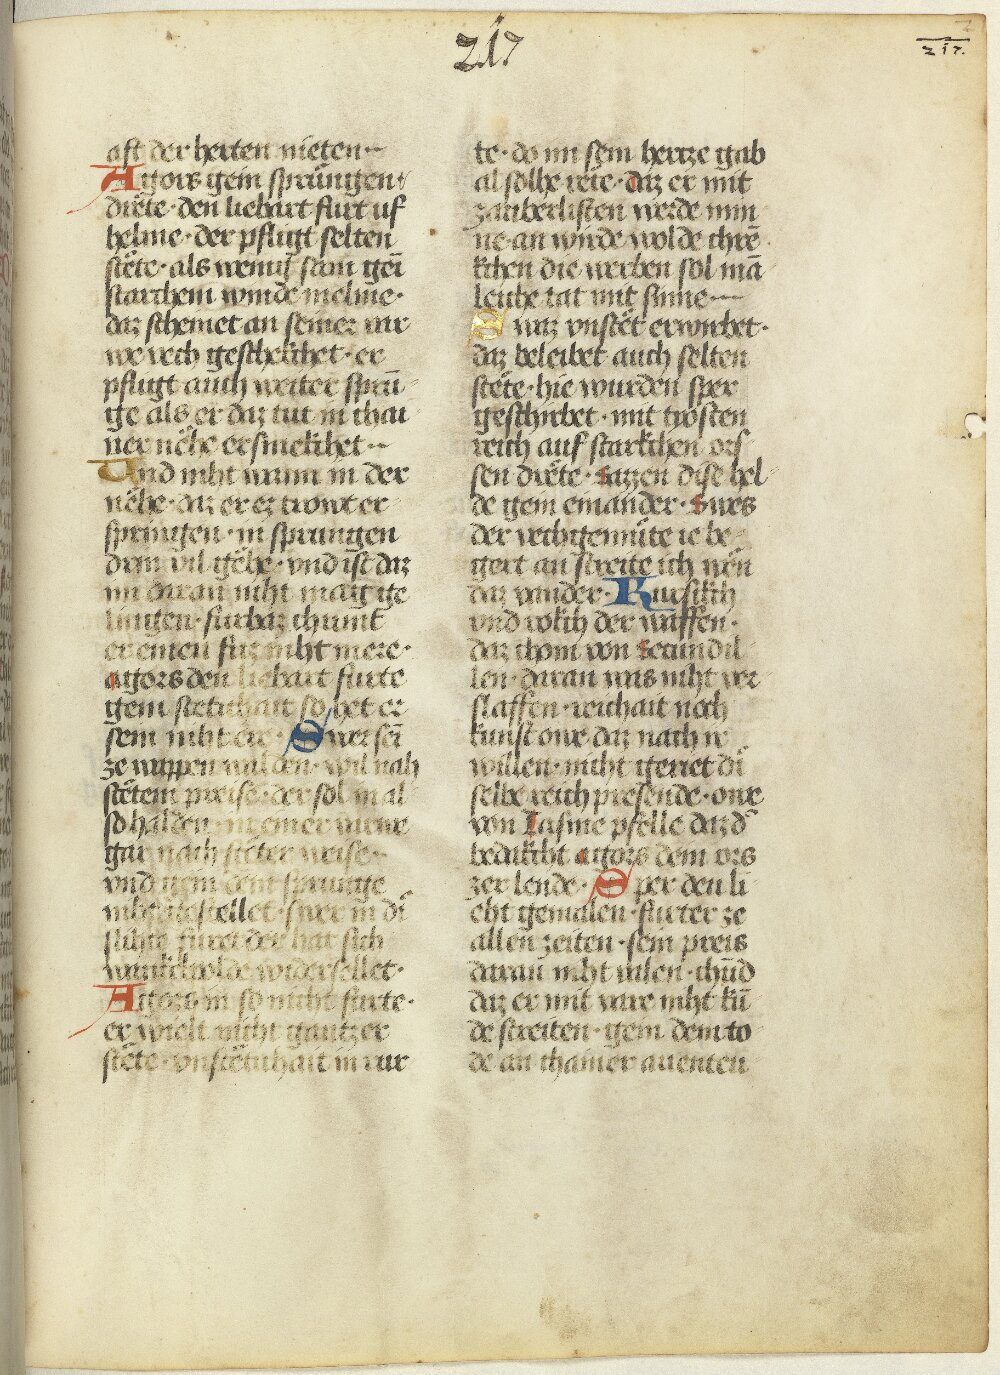 217
217.
aft der herten nieten
Agors gein sprüngen
dræte · den liebart furt uf
helme · der pfligt selten
stëte · als wenig sam gei
starchem winde melme ·
daz scheinet an seiner var
we vech geschekhet · er
pfligt auch weiter sprü
ge als er daz tut in thai
ner nëhe ersmekhet
Und niht wann in der
nëhe · daz er ez trowt er
springen · in sprungen
dem vil gëhe · vnd ist daz
im daran niht mag ge
lingen · furbaz chumt
er einen fuz niht mere ·
agors den liebart furte
gein stetichait so het er
sein niht ere · Swer sei
ze wappen wil den · wil nah
stëtem preise · der sol in al
so halden
gar nach steter weise
vnd gein dem sprunge
niht gestellet · swer in di
slihte furet der hat sich
wankelwolde widersellet ·
Agors in so nicht furte ·
er wielt nicht gantzer
stëte · vnstëtichait in rur
te · do im sein hertze gab
al solhe rëte · daz er mit
zauberlisten werde min
ne · an wirde wolde chre
khen die werben sol ma
leuhe tat mit sinne
Swaz vnstët erwirbet ·
daz beleibet auch selten
stëte · hie wurden sper
geschirbet · mit trosten
reich auf starkhen ors
sen drëte · sazzen dise hel
de gein einander · swes
der vechtgemüte ie be
gert an streite ich wën
daz vander · Kursikch
vnd rokh der waffen ·
daz chom von secundil
len · daran was niht ver
slaffen · reichait noch
kunst owe daz nach ir
willen · nicht geriet di
selbe reich presende · owe
von Jasine pfelle daz d
bedakht agors dem ors
zer lende · Sper den li
eht gemalen · furter ze
allen zeiten · sein preis
daran niht wilen · chund
daz er mit vare niht kü
de streiten · gein dem to
de an chainer auenteu